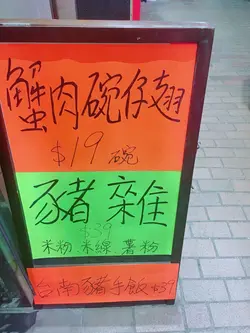 蟹肉碗仔翅
$19 碗
豬雜
$39
米粉 米線 薯粉
台南豬手飯 $39